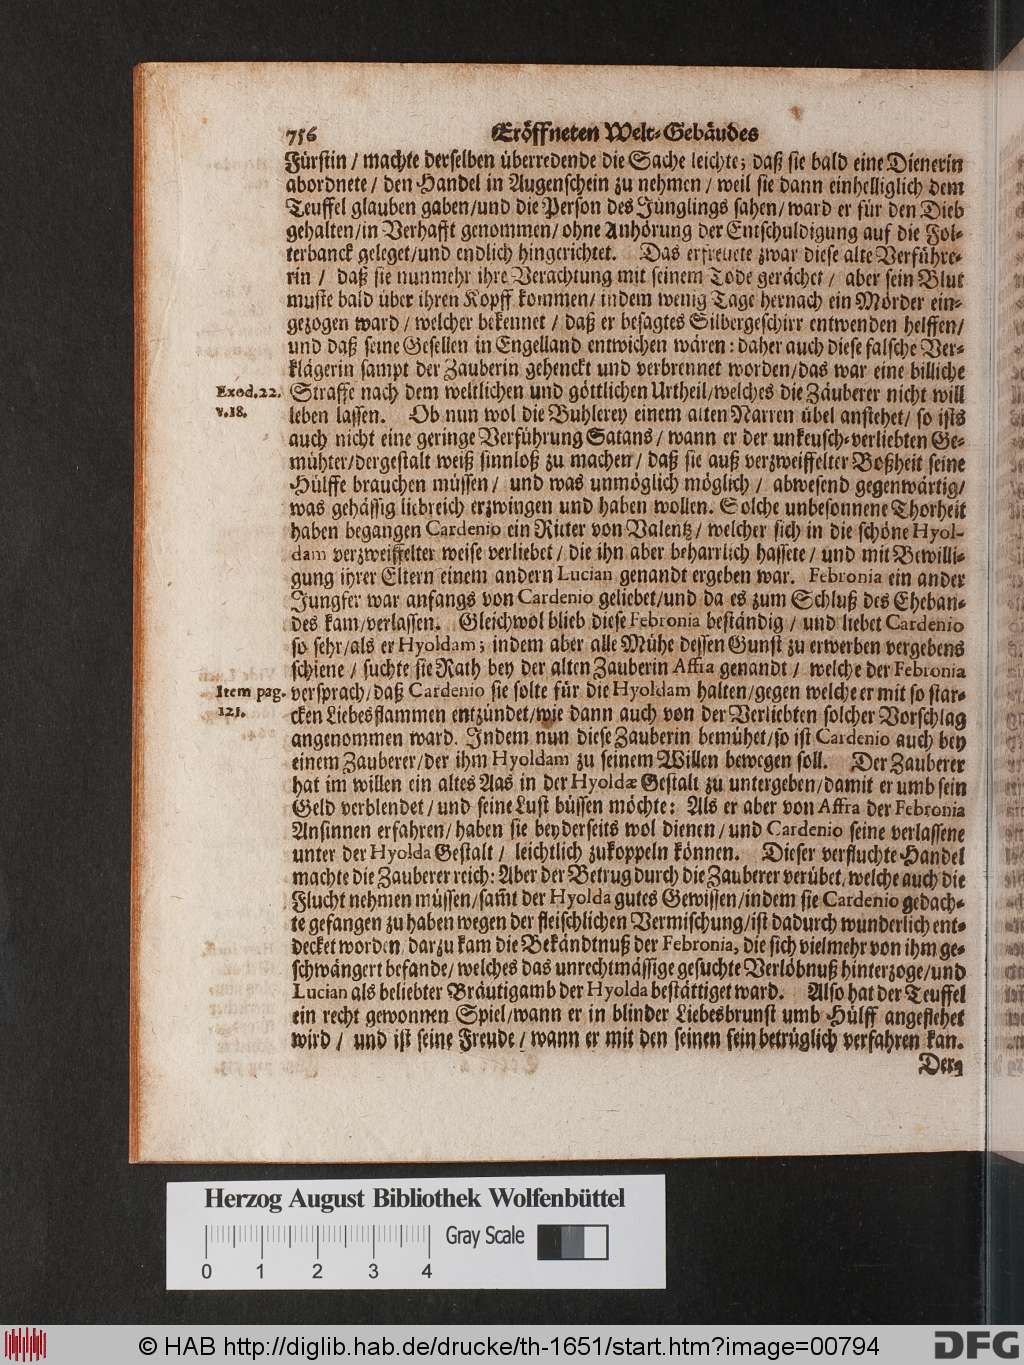 756 Eröffneten Welt-Gebäudes
Fürstin / machte derselben überredende die Sache leichte; daß sie bald eine Dienerin
abordnete / den Handel in Augenschein zu nehmen / weil sie dann einhelliglich dem
Teuffel glauben gaben/und die Person des Jünglings sahen/ward er für den Dieb
gehalten/in Verhafft genommen/ohne Anhörung der Entschuldigung auf die Fol-
terbanck geleget/und endlich hingerichtet. Das erfreuete zwar diese alte Verführe-
rin / daß sie nunmehr ihre Verachtung mit seinem Tode gerächet / aber sein Blut
muste bald über ihren Kopff kommen/indem wenig Tage hernach ein Mörder ein-
gezogen ward / welcher bekennet / daß er besagtes Silbergeschirr entwenden helffen/
und daß seine Gesellen in Engelland entwichen wären: daher auch diese falsche Ver-
klägerin sampt der Zauberin gehenckt und verbrennet worden/das war eine billiche
Exod.22. Straffe nach dem weltlichen und göttlichen Urtheil/welches die Zäuberer nicht will
v.18. leben lassen. Ob nun wol die Buhlerey einem alten Narren übel anstehet/ so ists
auch nicht eine geringe Verführung Satans / wann er der unkeusch-verliebten Ge-
mühter/dergestalt weiß sinnloß zu machen / daß sie auß verzweiffelter Boßheit seine
Hülffe brauchen müssen / und was unmöglich möglich / abwesend gegenwärtig/
was gehässig liebreich erzwingen und haben wollen. Solche unbesonnene Thorheit
haben begangen Cardenio ein Ritter von Valentz / welcher sich in die schöne Hyol-
dam verzweiffelter weise verliebet / die ihn aber beharrlich hassete / und mit Bewilli-
gung ihrer Eltern einem andern Lucian genandt ergeben war. Febronia ein ander
Jungfer war anfangs von Cardenio geliebet/und da es zum Schluß des Eheban-
des kam/verlassen. Gleichwol blieb diese Febronia beständig / und liebet Cardenio
so sehr/als er Hyoldam; indem aber alle Mühe dessen Gunst zu erwerben vergebens
schiene / suchte sie Rath bey der alten Zauberin Affra genandt / welche der Febronia
Item pag. versprach/daß Cardenio sie solte für die Hyoldam halten/gegen welche er mit so star-
121. cken Liebesflammen entzündet/wie dann auch von der Verliebten solcher Vorschlag
angenommen ward. Indem nun diese Zauberin bemühet/so ist Cardenio auch bey
einem Zauberer/der ihm Hyoldam zu seinem Willen bewegen soll. Der Zauberer
hat im willen ein altes Aas in der Hyoldæ Gestalt zu untergeben/damit er umb sein
Geld verblendet / und seine Lust büssen möchte: Als er aber von Affra der Febronia
Ansinnen erfahren / haben sie beyderseits wol dienen / und Cardenio seine verlassene
unter der Hyolda Gestalt / leichtlich zukoppeln können. Dieser verfluchte Handel
machte die Zauberer reich: Aber der Betrug durch die Zauberer verübet, welche auch die
Flucht nehmen müssen/sam̃t der Hyolda gutes Gewissen/indem sie Cardenio gedach-
te gefangen zu haben wegen der fleischlichen Vermischung/ist dadurch wunderlich ent-
decket worden, darzu kam die Bekändtnuß der Febronia, die sich vielmehr von ihm ge-
schwängert befande/welches das unrechtmässige gesuchte Verlöbnuß hinterzoge/und
Lucian als beliebter Bräutigamb der Hyolda bestättiget ward. Also hat der Teuffel
ein recht gewonnen Spiel/wann er in blinder Liebesbrunst umb Hülff angeflehet
wird / und ist seine Freude / wann er mit den seinen fein betrüglich verfahren kan.
Der-
Herzog August Bibliothek Wolfenbüttel
Gray Scale
0 1 2 3 4
© HAB http://diglib.hab.de/drucke/th-1651/start.htm?image=00794
DFG